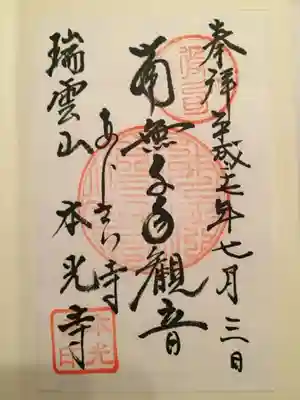 奉拝 平成十七年七月三日
南無千手觀音
あじさい寺
瑞雲山 本光寺